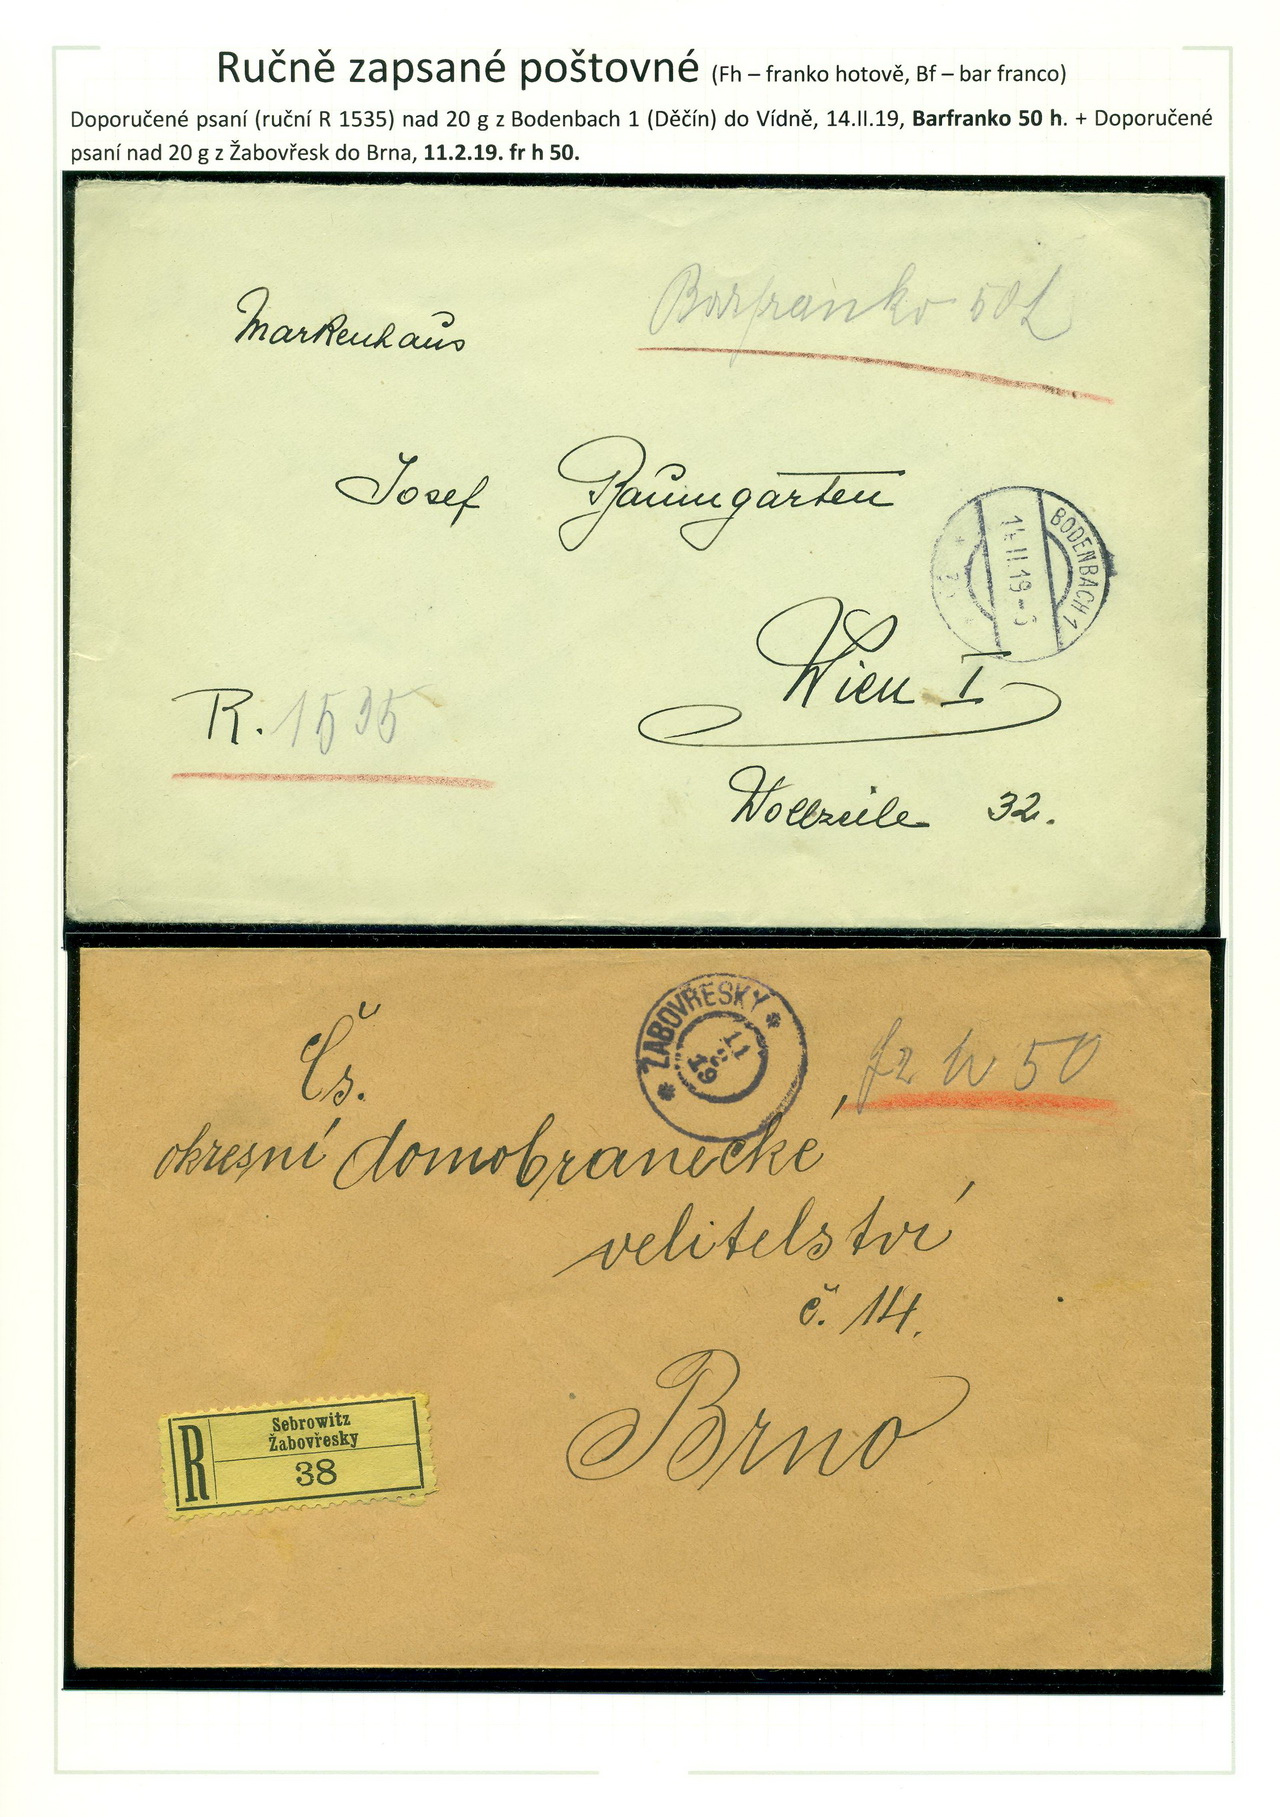 Ručně zapsané poštovné (Fh – franko hotově, Bf – bar franco)
Doporučené psaní (ruční R 1535) nad 20 g z Bodenbach 1 (Děčín) do Vídně, 14.II.19, Barfranko 50 h. + Doporučené
psaní nad 20 g z Žabovřesk do Brna, 11.2.19. fr h 50.
Barfranko 50 h
Markenhaus
Josef Baumgarten
BODENBACH 1
14.II.19
Wien I
R. 1535
Wollzeile 32.
ŽABOVŘESKY
11
2
19
fr h 50
Čs.
okresní domobranecké
velitelství
č. 14.
Brno
R
Sebrowitz
Žabovřesky
38